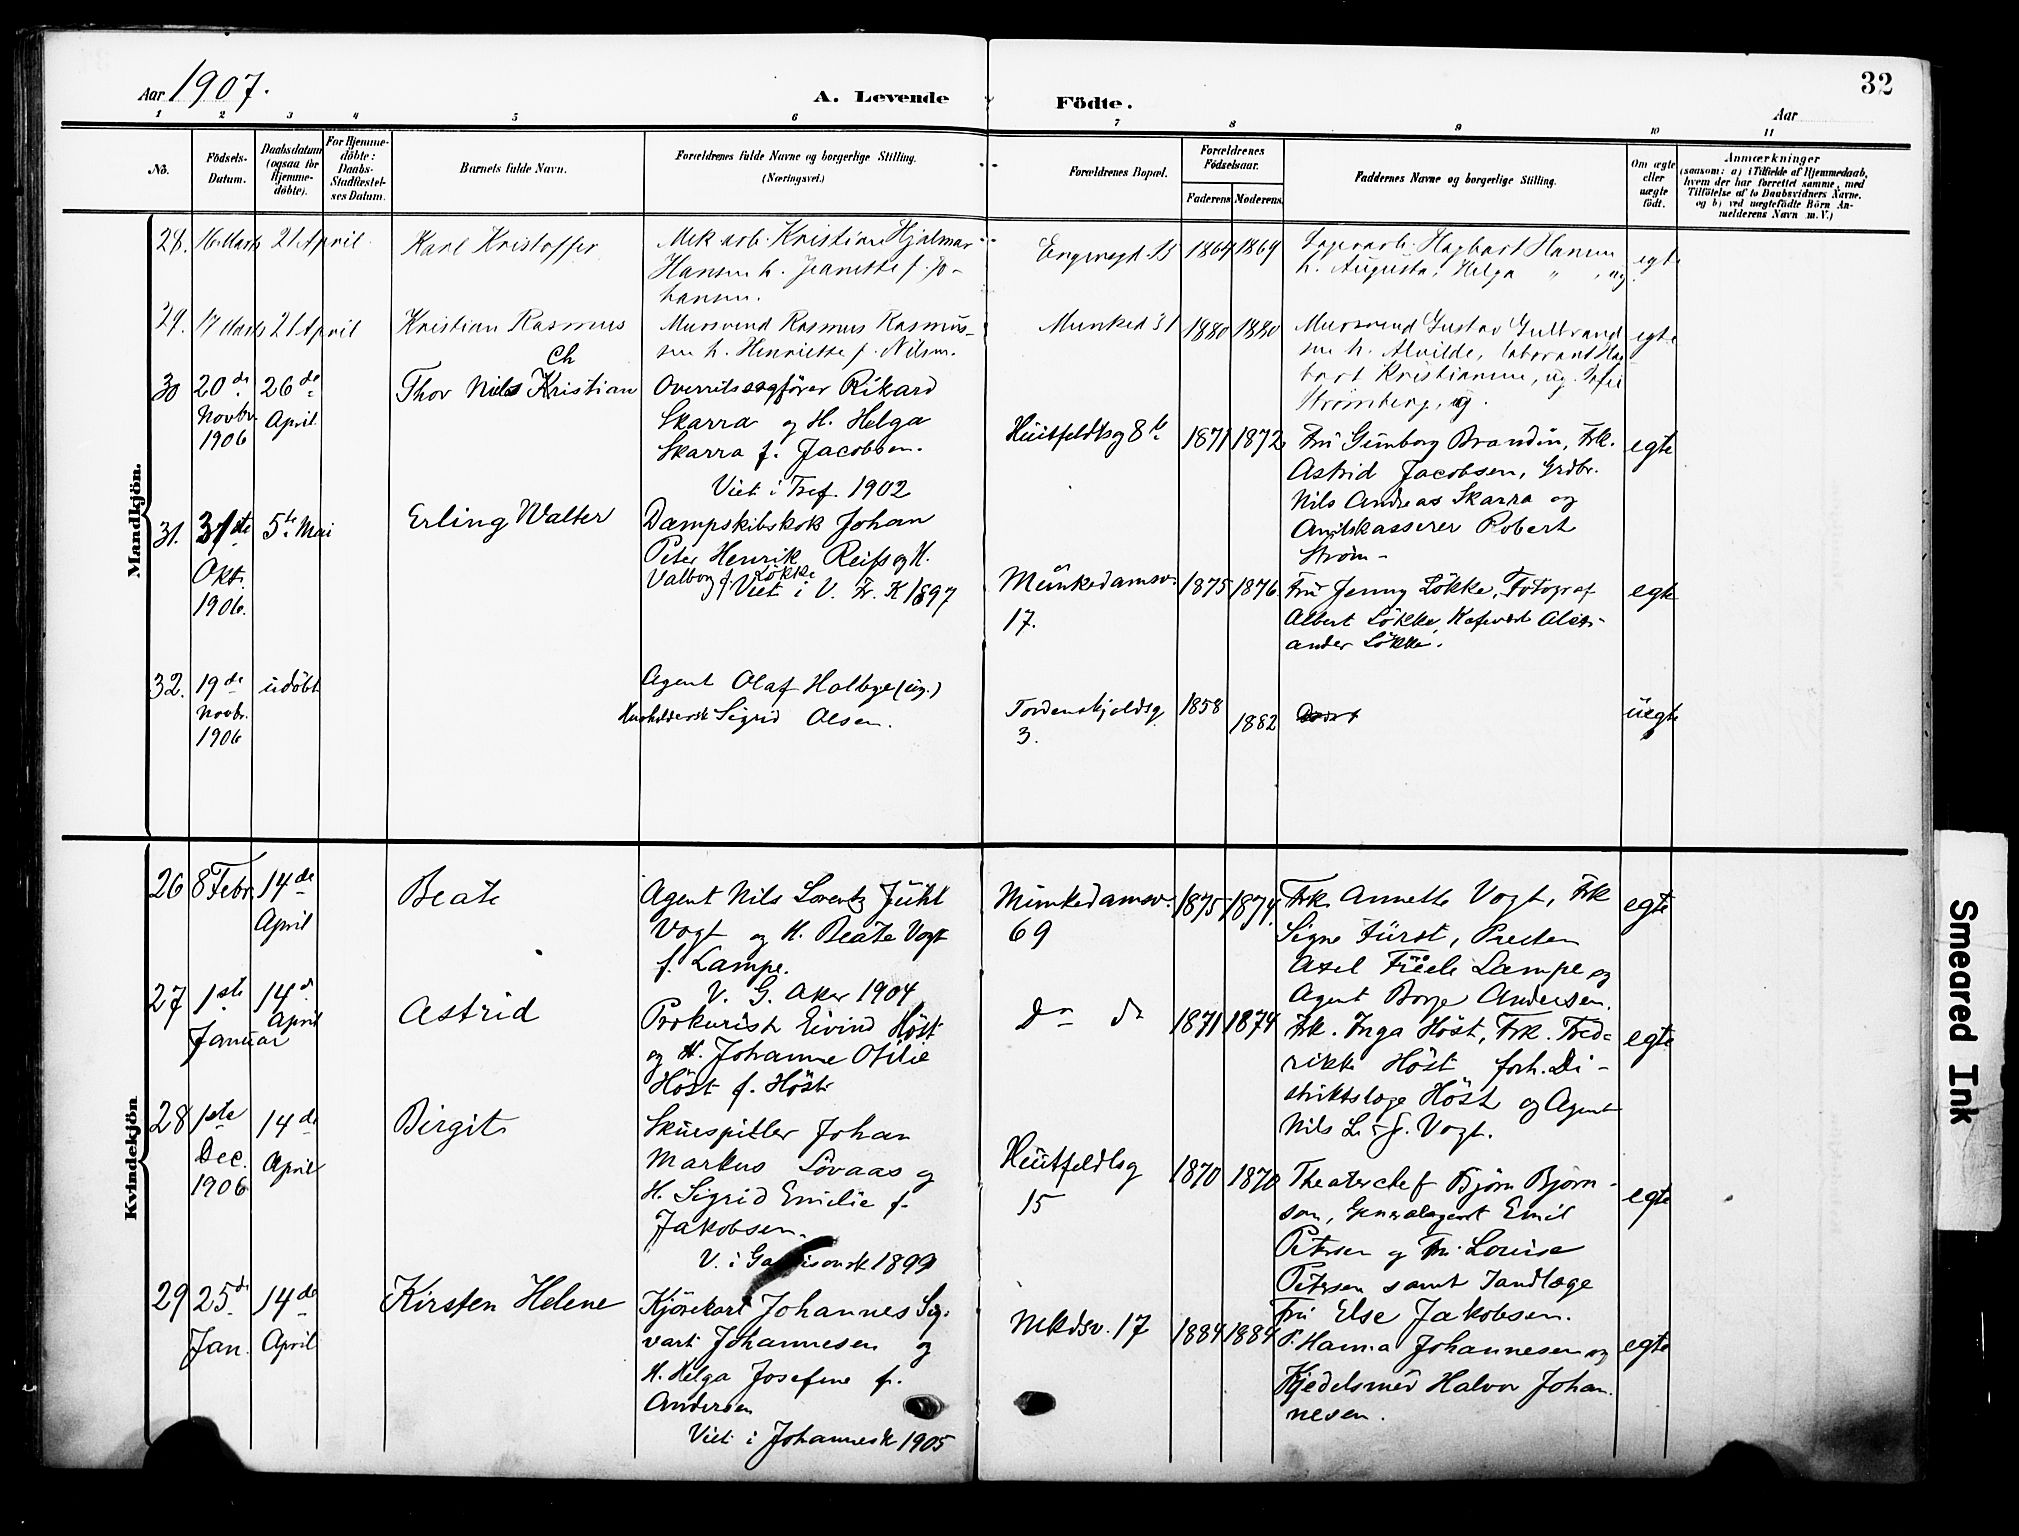 Aar 1907.
A. Levende Födte.
Aar
32
1 2 3 4 5 6 7 8 9 10 11
No.
Födsels-
Datum.
Daabsdatum
(ogsaa for
Hjemme-
döbte).
For Hjemme-
döbte:
Daabs-
Stadfæstel-
ses Datum.
Barnets fulde Navn.
Forældrenes fulde Navne og borgerlige Stilling.
(Næringsvei.)
Forældrenes Bopæl.
Forældrenes
Födselsaar.
Faderens Moderens
Faddernes Navne og borgerlige Stilling.
Om ægte
eller
uægte
født.
Anmærkninger
(saasom: a) i Tilfælde af Hjemmedaab,
hvem der har forrettet samme, med
Tilföielse af to Daabsvidners Navne,
og b) ved uægtefödte Börn An-
melderens Navn m. V.)
Mandkjön.
28. 16 Marts 21 April
Karl Kristoffer
Mek arb. Kristian Hjalmar
Hansen h. Jeanette f. Jo-
hansen.
1864 1869
Hagbart Hansen
h. Augusta, Helga " , ug.
egte
29. 17 Marts 21 April
Kristian Rasmus
Mursvend Rasmus Rasmus-
sen h. Henriette f. Nilsen.
Munked 31
1880 1880
Mursvend Gustav Gulbrand
sen h. Alvilde, laborant Hag-
bart Kristiansen, ug. Sofie
Strömberg, ug.
egte
30 20de Novbr. 1906
26de April
Ch
Thor Nils Kristian
Overretssagförer Rikard
Skarra og H. Helga
Skarra f. Jacobsen.
Viet i Tref. 1902
Huitfeldtsg 8 b
1871 1872
Fru Gunborg Brandin, Frk.
Astrid Jacobsen, Grdbr.
Nils Andreas Skarra og
Amtskasserer Robert
Ström -
egte
31. 31ste Okt. 1906.
5te Mai
Erling Walter
Dampskibskok Johan
Peter Henrik Reiss og H.
Valborg f. Lökke
Viet i V. Fr. K 1897
Munkedamsv.
17.
1875 1876.
Fru Jenny Lökke, Fotograf
Albert Lökke, Kafevert Alex-
ander Lökke.
egte
32. 19de Novbr. 1906
udöbt
Agent Olaf Holbye (ug.)
Husholderske Sigrid Olsen.
Tordenskjoldsg.
3.
1858
1882
uegte
Kvindekjön
26 8 Febr. 14de April
Beate
Agent Nils Lorentz Juhl
Vogt og H. Beate Vogt
f. Lampe.
V. G. Aker 1904
Munkedamsv.
69
1875 1874.
Frk. Annette Vogt, Frk
Signe Fürst, Presten
Axel Lampe og
Agent Borge Andersen.
egte
27 1ste Januar
14de April
Astrid
Prokurist Eivind Höst
og H. Johanne Otilie
Höst f. Höst
Do do
1871 1874
Frk. Inga Höst, Frk. Fred=
rikke Höst forh. Di-
striktslæge Höst og Agent
Nils L. J. Vogt.
egte
28 1ste Dec. 1906
14de April
Birgit
Skuespiller Johan
Markus Lövaas og
H. Sigrid Emilie f.
Jakobsen.
V. i Garnisonsk 1899
Huitfeldtsg
15
1870 1870
Theaterchef Björn Björn-
son, Generalagent Emil
Petersen og Fru Louise
Petersen samt Tandlæge
Fru Else Jakobsen.
egte
29 25de Jan.
14de April
Kirsten Helene
Kjörekarl Johannes Sig-
vart Johannesen og
H. Helga Josefine f.
Andersen
Viet i Johannesk 1905
Mkdsv. 17
1884 1884
P. Hanna Johannesen og
Kjedelsmed Halvor Johan-
nesen.
egte
Smeared Ink